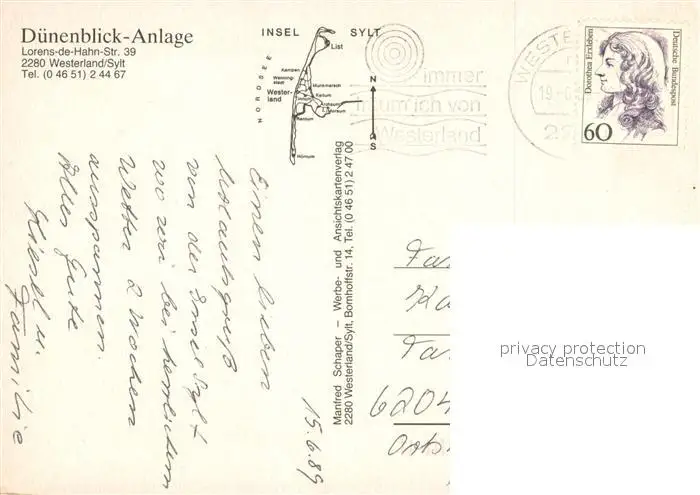 Dünenblick-Anlage
Lorens-de-Hahn-Str. 39
2280 Westerland/Sylt
Tel. (0 46 51) 2 44 67
INSEL SYLT
NORDSEE
List
Kampen
Wenning-
stedt
Munkmarsch
Wester-
land
Keitum
Archsum
Morsum
Rantum
Hörnum
N
S
immer
träum' ich von
Westerland
WESTE
19-6
22
Dorothea Erxleben
Deutsche Bundespost
60
Manfred Schaper – Werbe- und Ansichtskartenverlag
2280 Westerland/Sylt, Bomhoffstr. 14, Tel. (0 46 51) 2 47 00
15.6.89
Einen lieben
Urlaubsgruß
von der Insel Sylt
wo wir bei herrlichem
Wetter 2 Wochen
ausspannen.
Alles Gute
u.
Familie
Fa
Ka
Ta
6204
privacy protection
Datenschutz